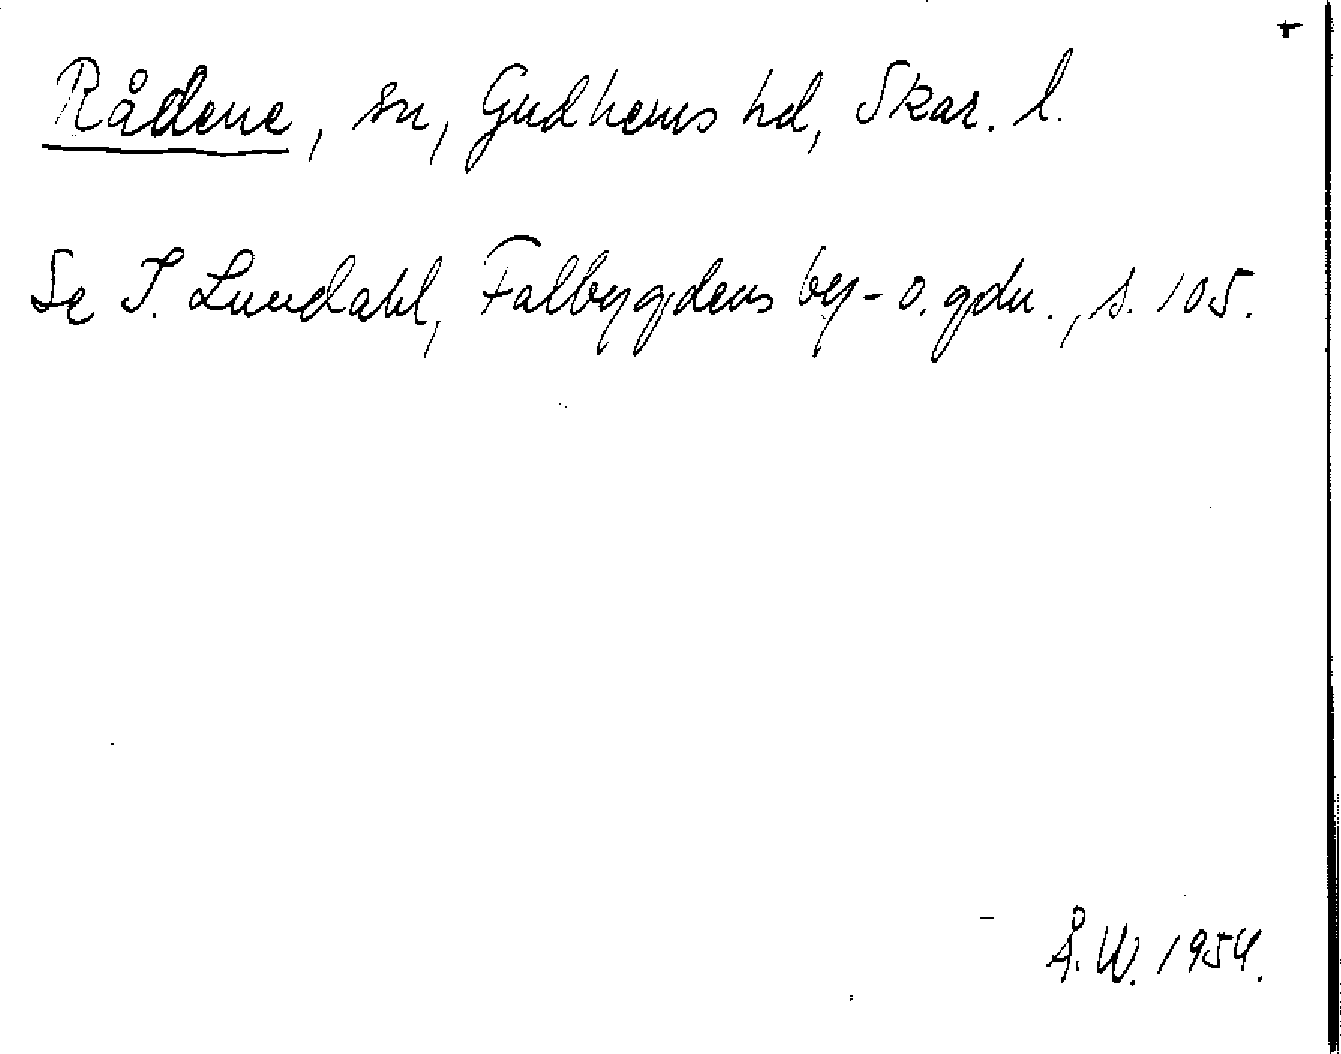 Rådene, sn, Gudhems hd, Skar. l.
Se I. Lundahl, Falbygdens by- o. gdn., s. 105.
Å. W. 1954.